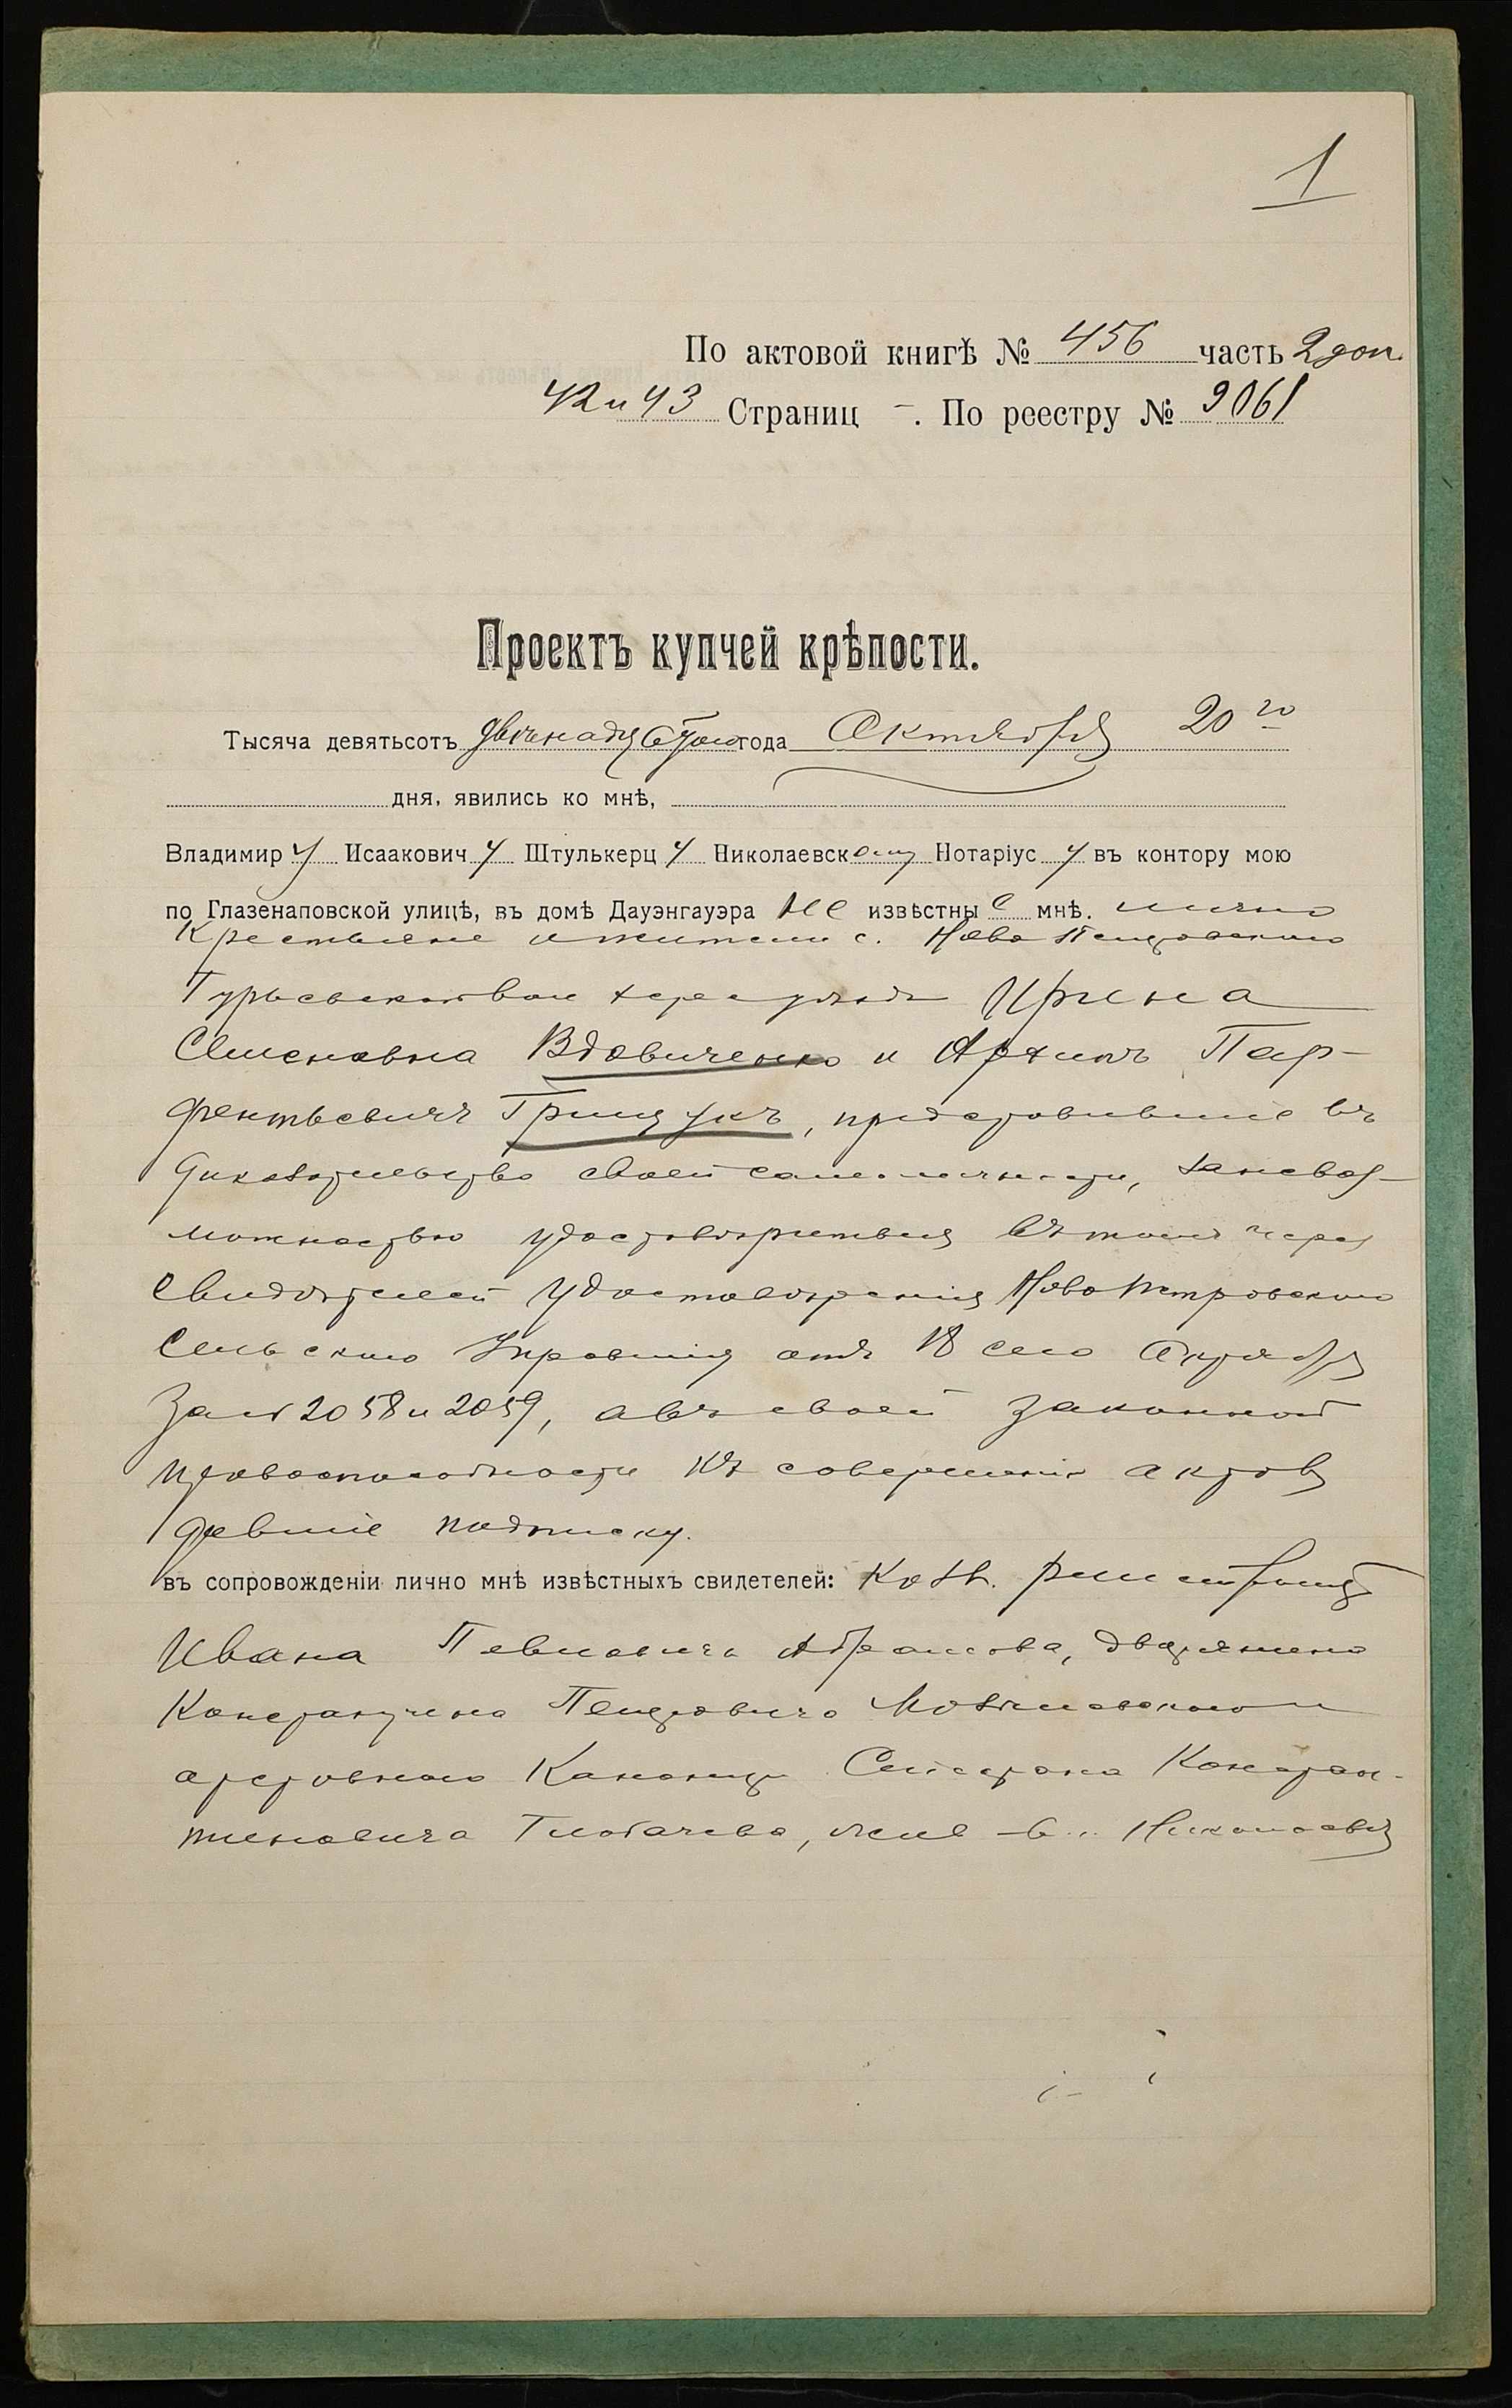 1
По актовой книгѣ № 456 часть 2 доп.
42 и 43 Страниц -. По реестру № 9061
Проектъ купчей крѣпости.
Тысяча девятьсотъ двѣнадцатого года Октября 20го
дня, явились ко мнѣ,
Владимиру Исааковичу Штулькерцу Николаевскому Нотаріусу въ контору мою
по Глазенаповской улицѣ, въ домѣ Дауэнгауэра не извѣстные мнѣ. лично
Крестьяне и жители с. Ново Петровского
Ирина
Семеновна Вдовиченко и Архипъ Пар-
фентьевичъ Грищукъ, представившіе въ
доказательство своей самоличности, за невоз-
можностью удостовѣриться въ томъ через
свидѣтелей удостовѣренія Ново Петровского
Сельского Управленія отъ 18 сего Октября
за № 2058 и 2059, а въ своей законной
правоспособности къ совершенію актовъ
давшіе подписку.
въ сопровожденіи лично мнѣ извѣстныхъ свидетелей:
Ивана Павловича Абрамова, дворянина
Константина Петровича
Константи-
тиновича жив. въ г. Николаевѣ